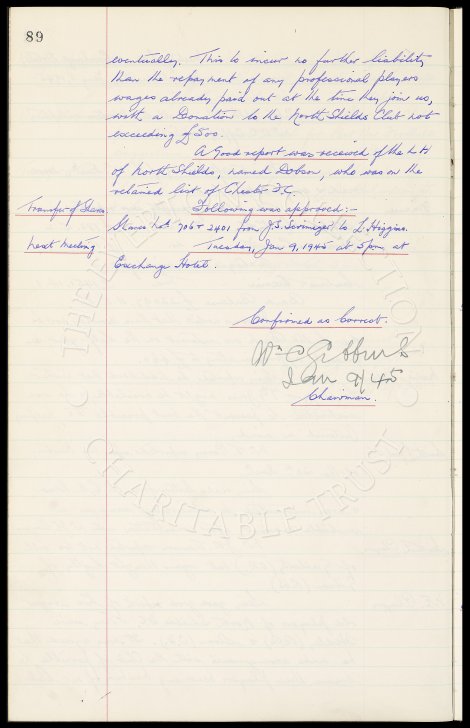 89
eventually. This to incur no further liability
than the repayment of any professional players
wages already paid out at the time they join us,
with a Donation to the North Shields Club not
exceeding £500.
A Good report was received of the L.H
of North Shields, named Dobson, who was on the
retained list of Chester F.C.
Transfer of Shares. Following was approved:-
Shares Nos 706 & 2401 from J.S. to L. Higgins.
Next Meeting Tuesday, Jan 9, 1945 at 5pm at
Exchange Hotel.
Confirmed as Correct.
Wm C Gibbins
Jan 9/45
Chairman.
THE EVERTON COLLECTION
CHARITABLE TRUST